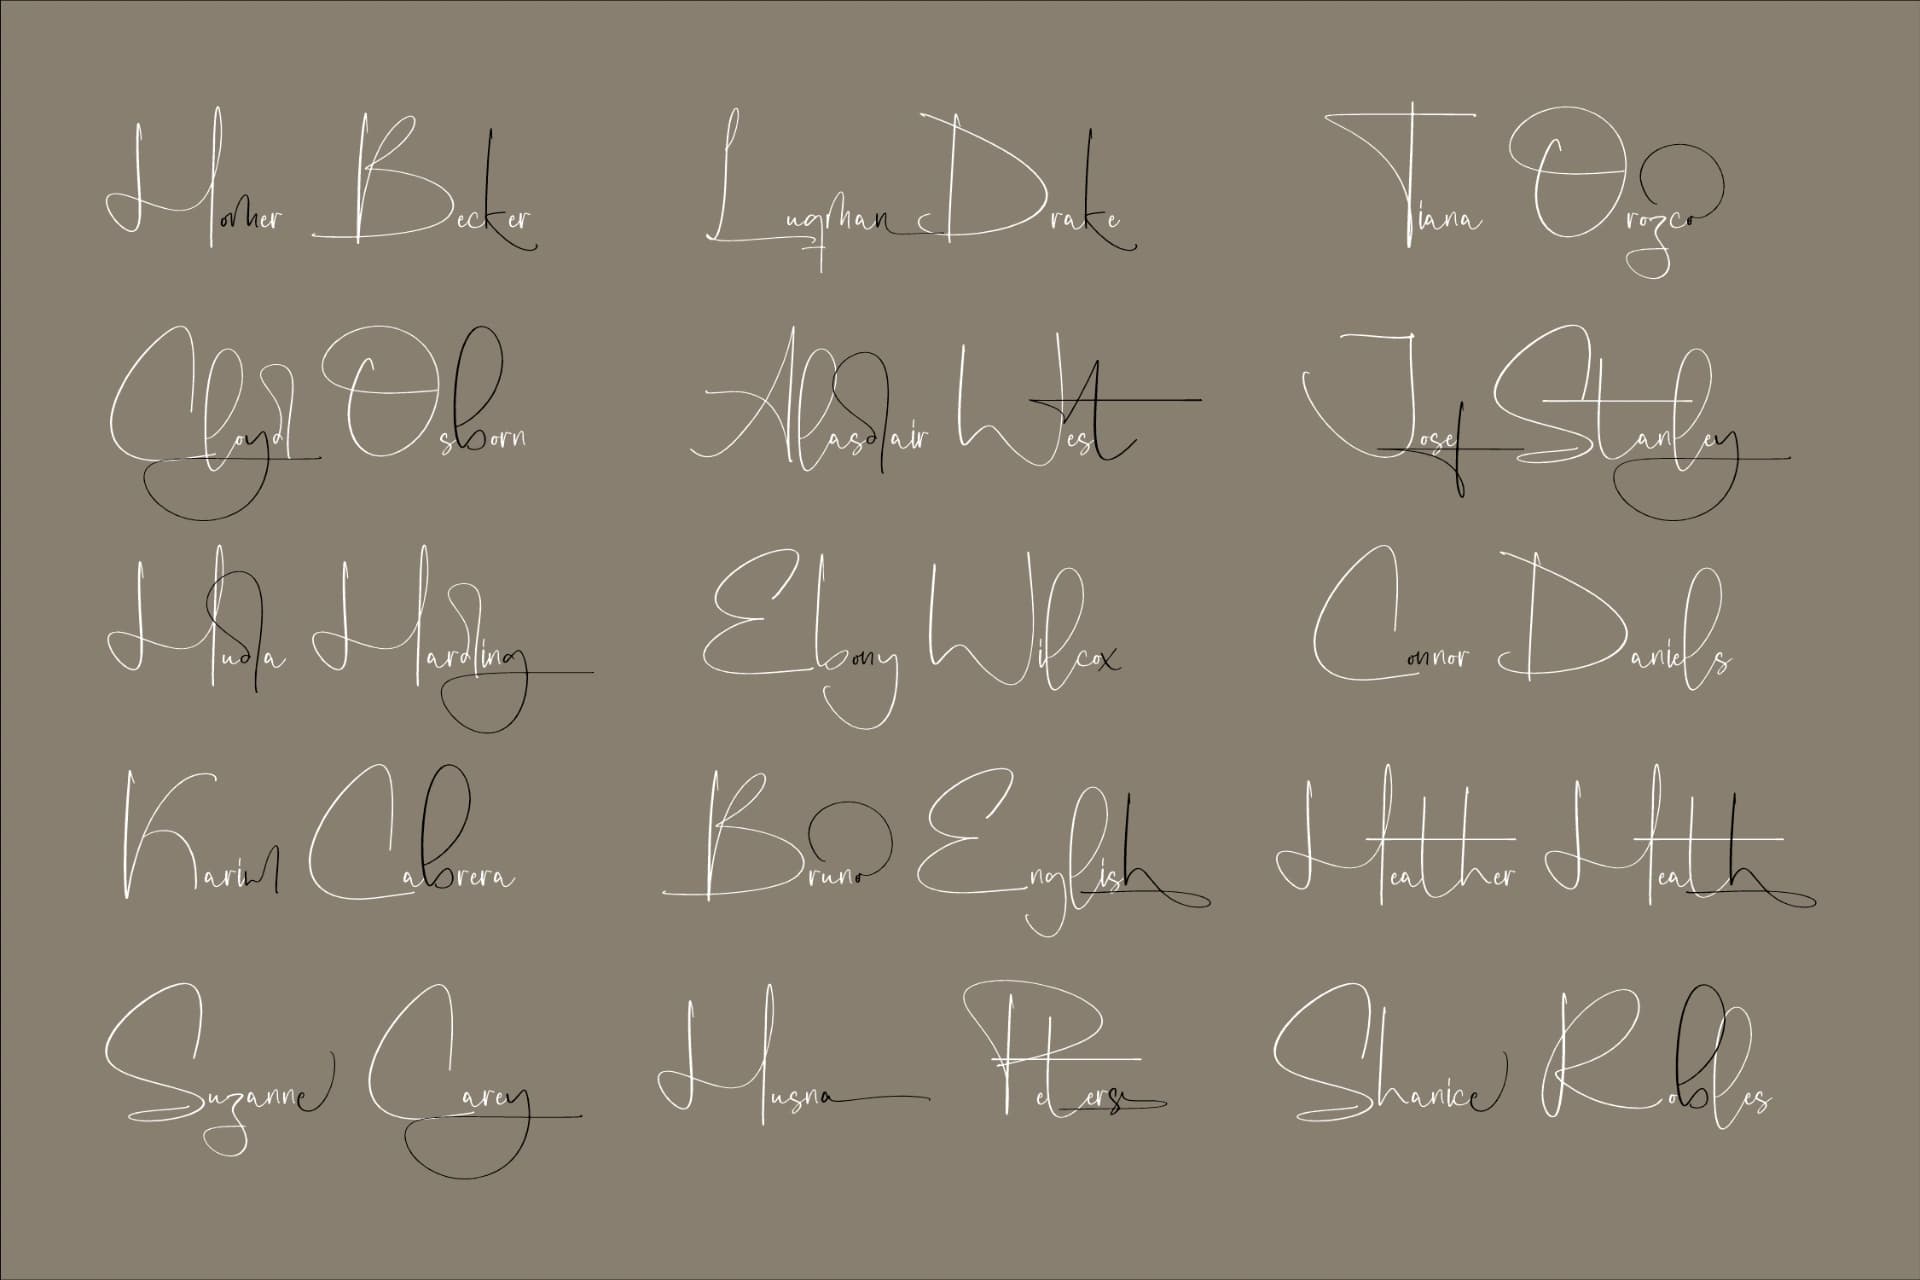 Homer Becker Luqman Drake Tiana Orozco
Cloyd Osborn Alasdair West Josef Stanley
Huda Harding Ebony Wilcox Connor Daniels
Karim Cabrera Bruno English Heather Heath
Suzanne Carey Husna Peters Shanice Robles